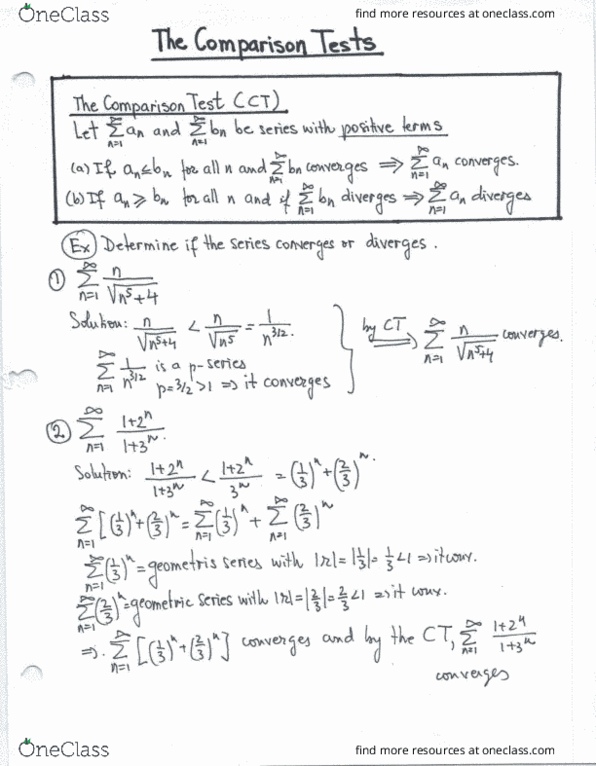 OneClass find more resources at oneclass.com
The Comparison Tests
The Comparison Test (CCT)
Let ∞∑n=1 an and ∞∑n=1 bn be series with positive terms
(a) If an ≤ bn for all n and ∞∑n=1 bn converges ⇒ ∞∑n=1 an converges.
(b) If an ≥ bn for all n and if ∞∑n=1 bn diverges ⇒ ∞∑n=1 an diverges
Ex) Determine if the series converges or diverges.
① ∞∑n=1 n/√(n⁵+4)
Solution: n/√(n⁵+4) < n/√n⁵ = 1/n^(3/2). } by CT ⇒ ∞∑n=1 n/√(n⁵+4) converges.
∞∑n=1 1/n^(3/2) is a p-series
p=3/2>1 ⇒ it converges
② ∞∑n=1 (1+2ⁿ)/(1+3ⁿ).
Solution: (1+2ⁿ)/(1+3ⁿ) < (1+2ⁿ)/3ⁿ = (1/3)ⁿ + (2/3)ⁿ.
∞∑n=1 [(1/3)ⁿ+(2/3)ⁿ] = ∞∑n=1 (1/3)ⁿ + ∞∑n=1 (2/3)ⁿ
∞∑n=1 (1/3)ⁿ = geometris series with |r| = |1/3| = 1/3 <1 ⇒ it conv.
∞∑n=1 (2/3)ⁿ = geometric series with |r| = |2/3| = 2/3 <1 ⇒ it conv.
⇒. ∞∑n=1 [(1/3)ⁿ+(2/3)ⁿ] converges and by the CT, ∞∑n=1 (1+2ⁿ)/(1+3ⁿ)
converges
OneClass find more resources at oneclass.com